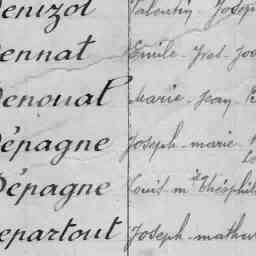 enizot Valentin Joseph
ennat Emile
enoual Marie-Jean
Dépagne Joseph-marie
Dépagne Louis-mie Théophil
epartout Joseph-mathu